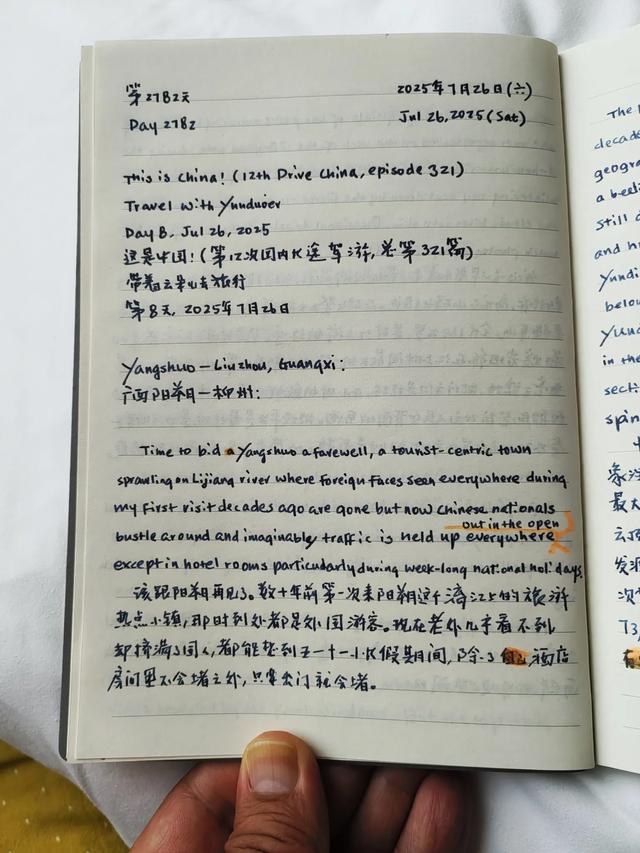 第2782天 2025年7月26日(六)
Day 2782 Jul 26, 2025(Sat)
This is China! (12th Drive China, episode 321)
Travel with Yunduoer
Day 8, Jul 26, 2025
这是中国!(第12次国内长途驾游,总第321篇)
带着云朵儿去旅行
第8天, 2025年7月26日
Yangshuo — Liuzhou, Guangxi:
广西阳朔—柳州:
Time to bid Yangshuo a farewell, a tourist-centric town
sprawling on Lijiang river where foreign faces seen everywhere during
my first visit decades ago are gone but now Chinese nationals
out in the open
bustle around and imaginably traffic is held up everywhere
except in hotel rooms particularly during week-long national holidays.
该跟阳朔再见了。数十年前第一次来阳朔这个漓江上的旅游
热点小镇,那时到处都是外国游客。现在老外几乎看不到
却挤满了国人,都能想到五一十一小长假期间,除了酒店
房间里不会堵之外,只要出门就会堵。
The
decade
geogra
a beeli
still
and hi
Yundi
below
Yund
in the
secti
spin
最大
云顶
发源
次